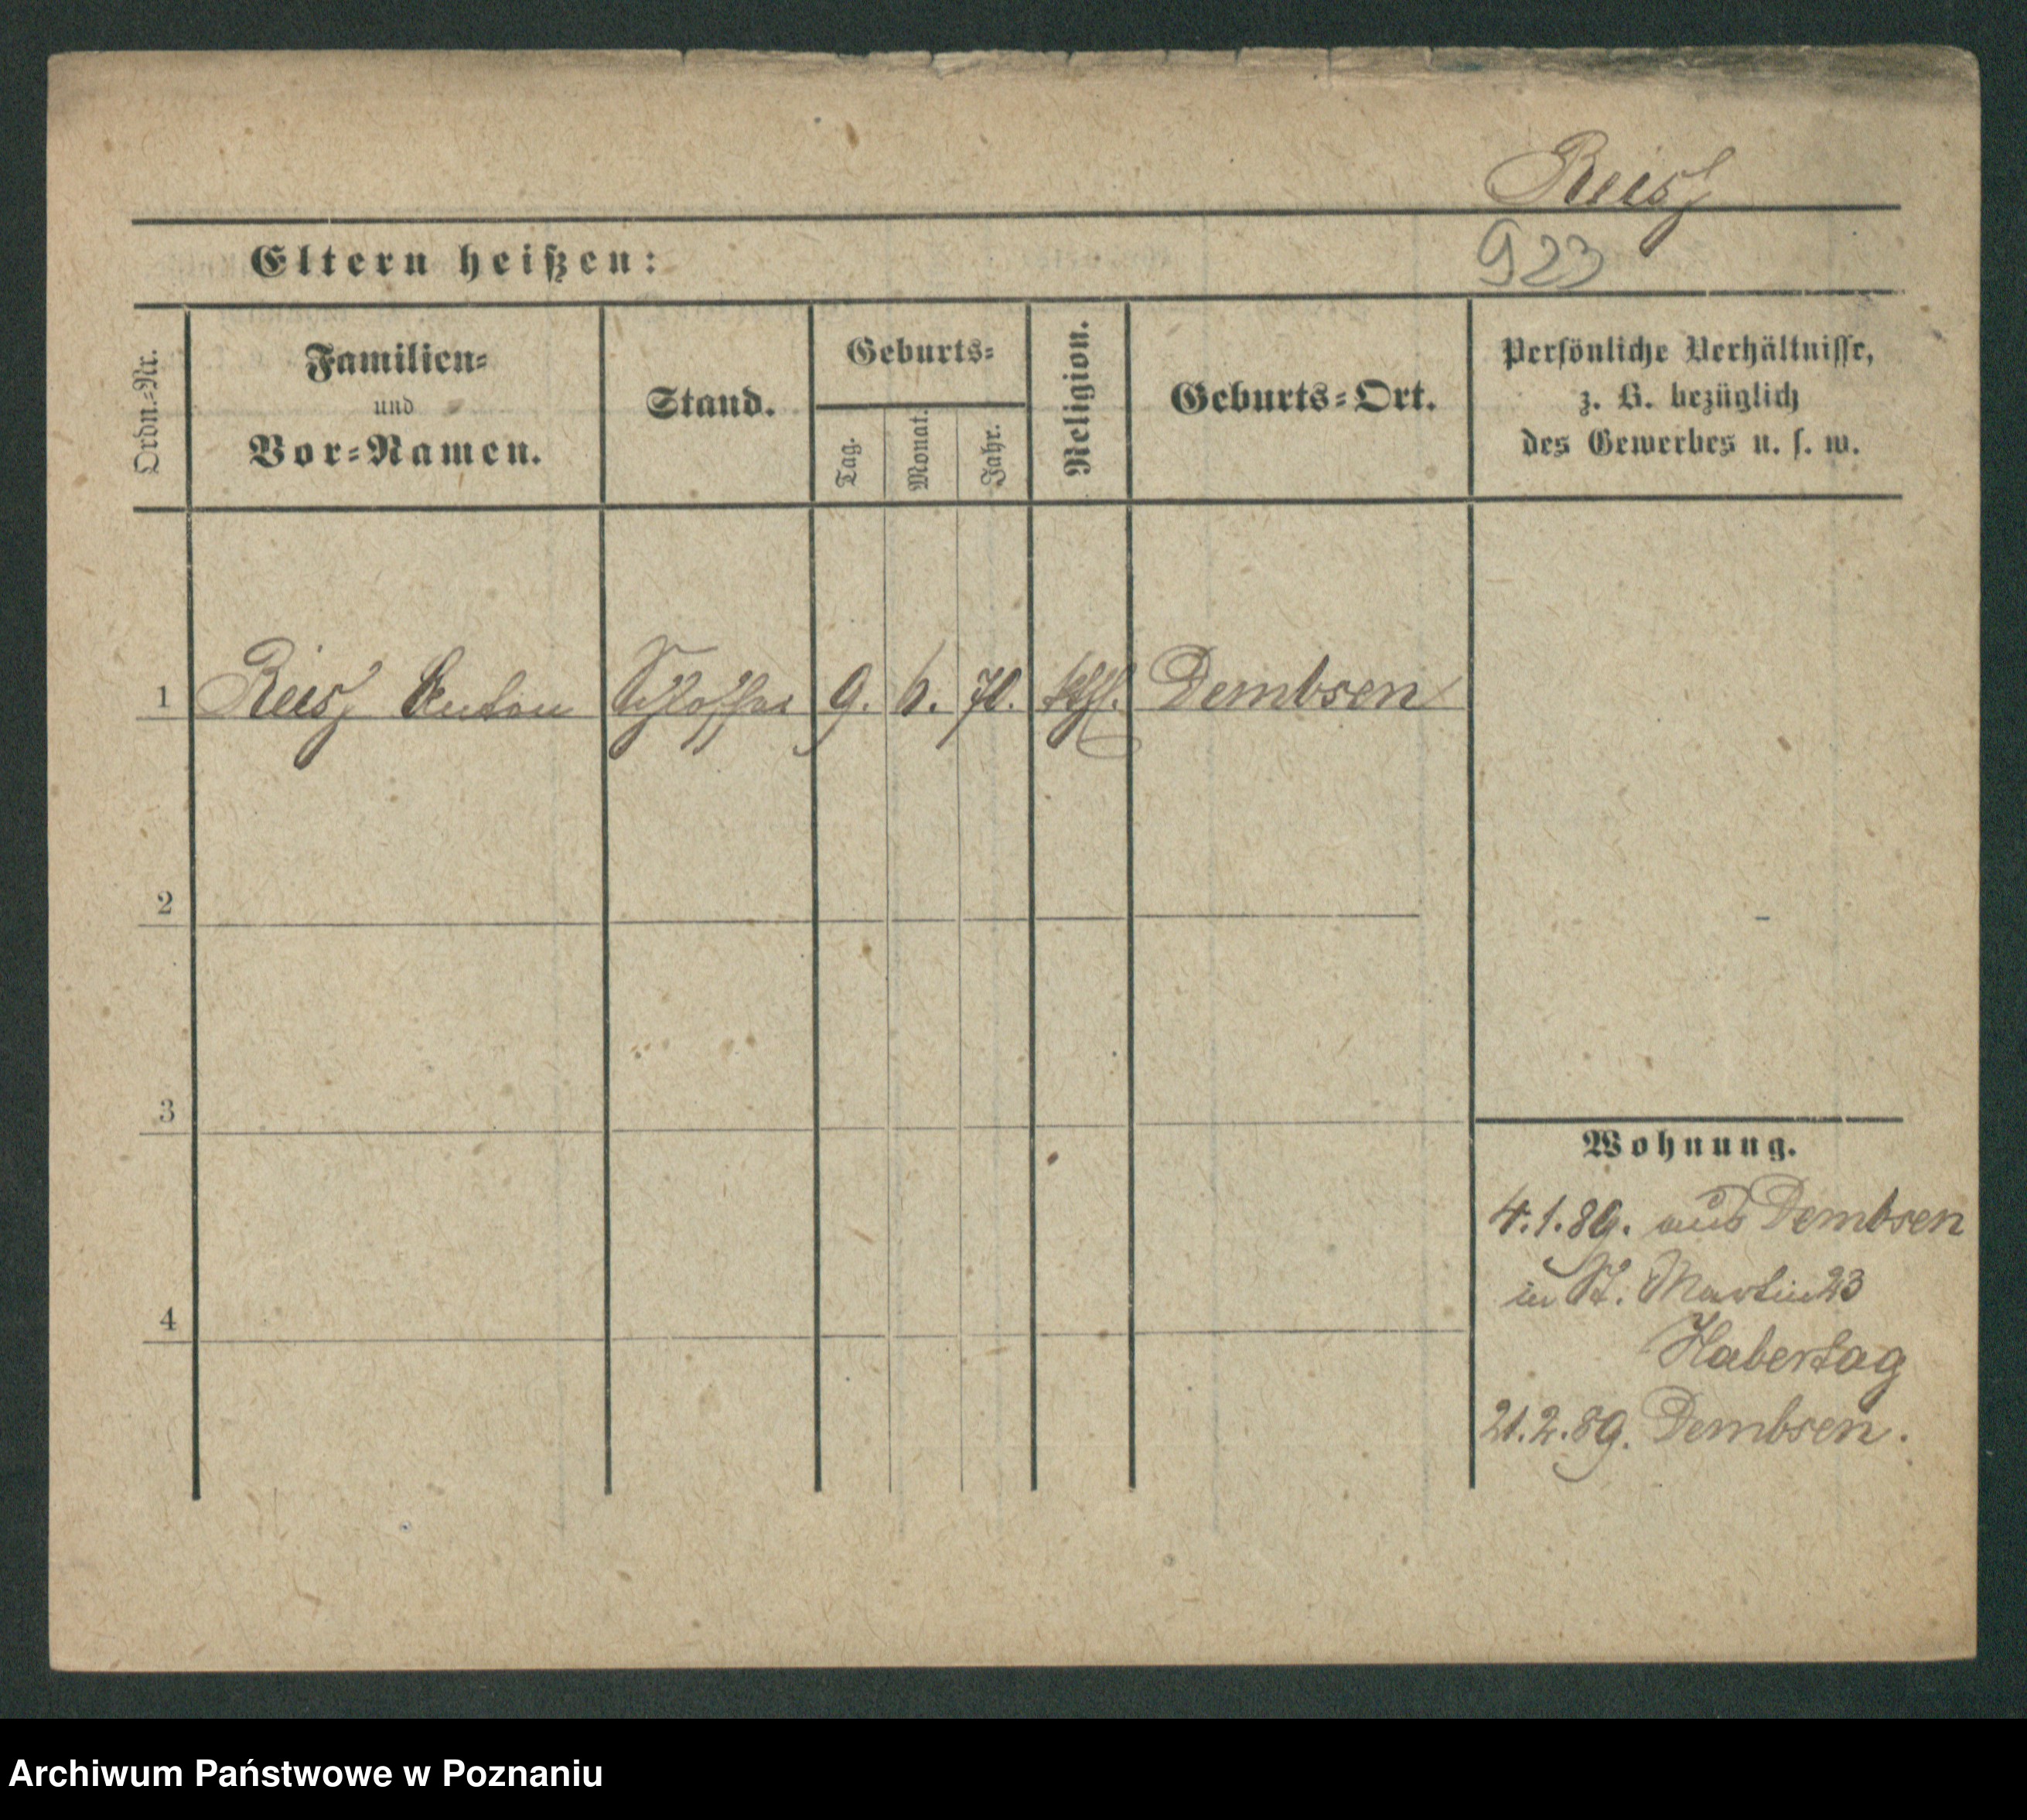 Reisz
923
Eltern heißen:
Ordn.=Nr.
Familien=
und
Vor=Namen.
Stand.
Geburts=
Tag.
Monat.
Jahr.
Religion.
Geburts=Ort.
Persönliche Verhältnisse,
z. B. bezüglich
des Gewerbes u. s. w.
1 Reisz Anton Schlosser 9. 6. 70. kthl. Dembsen
2
3
4
Wohnung.
4.1.89. aus Dembsen
in St. Martin 23
Habertag
21.2.89. Dembsen.
Archiwum Państwowe w Poznaniu